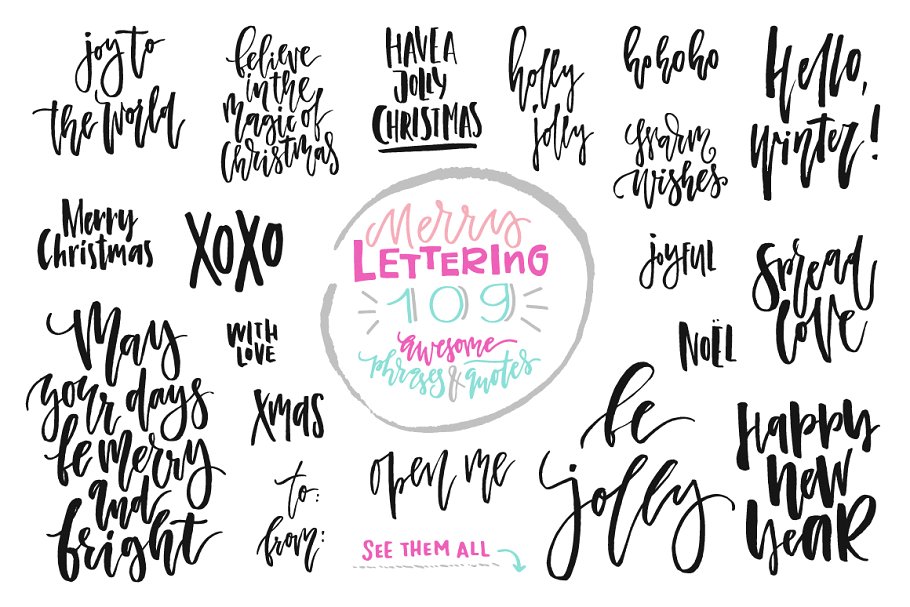 joy to
the world
believe
in the
magic of
Christmas
HAVE A
JOLLY
CHRISTMAS
holly
jolly
hohoho
warm
wishes
Hello,
winter!
Merry
Christmas
XOXO
Merry
LETTERING
109
awesome
phrases & quotes
joyful
Spread
Love
May
your days
be merry
and
bright
WITH
LOVE
NOËL
Xmas
to:
from:
open me
be
jolly
Happy
New
Year
SEE THEM ALL